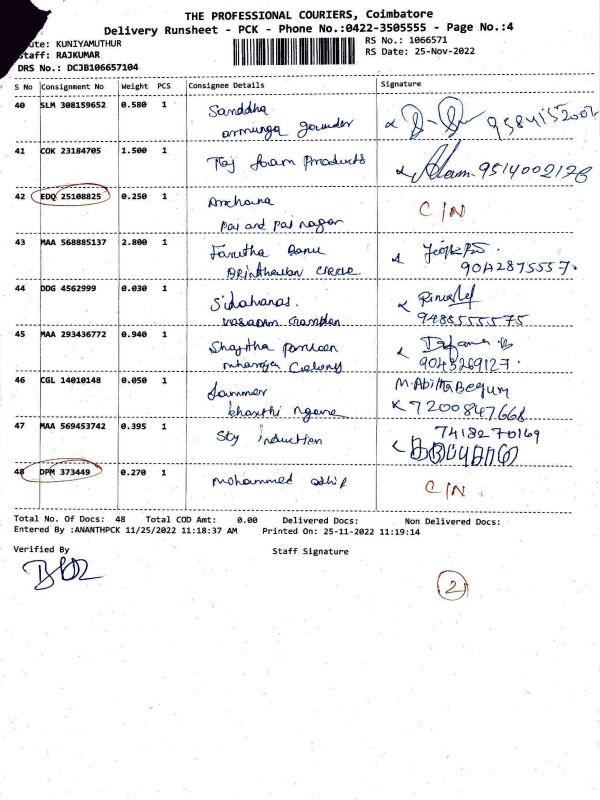 THE PROFESSIONAL COURIERS, Coimbatore
Delivery Runsheet - PCK - Phone No.:0422-3505555 - Page No.:4
KUNIYAMUTHUR
RS No.: 1066571
Staff: RAJKUMAR
RS Date: 25-Nov-2022
DRS No.: DCJB106657104
S No Consignment No Weight PCS Consignee Details Signature
40 SLM 308159652 0.580 1 Sanddha
armunga gounder
41 COK 23184705 1.500 1 Taj foam Products
9514002128
42 EDQ 25108825 0.250 1 Archana C/N
Pai and Pai nagar
43 MAA 568885137 2.800 1 Farutha Banu
Brinthavan circle
44 DDG 4562999 0.030 1
9488555575
45 MAA 293436772 0.940 1
9043269127.
46 CGL 14010148 0.050 1 M.AbithaBegum
7200847668
47 MAA 569453742 0.395 1 Sky induction 7418270169
48 DPM 373449 0.270 1 Mohammed C/N
Total No. Of Docs: 48 Total COD Amt: 0.00 Delivered Docs: Non Delivered Docs:
Entered By :ANANTHPCK 11/25/2022 11:18:37 AM Printed On: 25-11-2022 11:19:14
Verified By Staff Signature
2